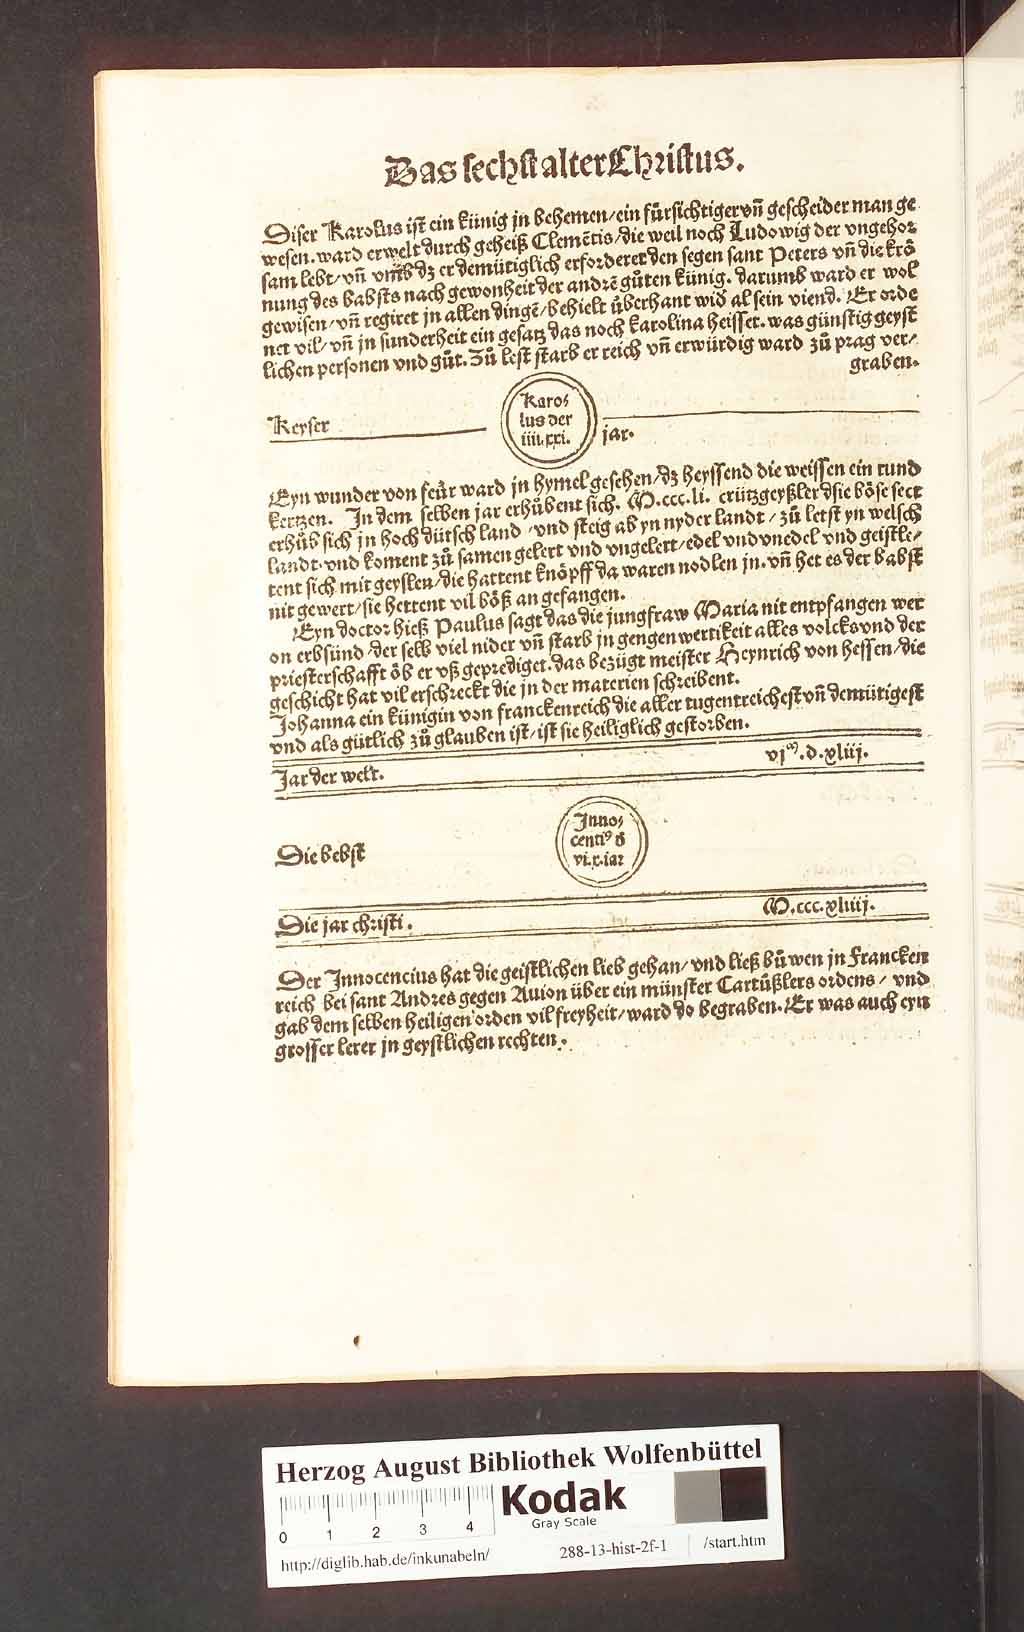 Das sechst alter Christus.
Diser Karolus ist ein künig jn behemen/ein fürsichtiger vn̄ gescheider man ge
wesen. ward erwelt durch geheiß Clemētis/die weil noch Ludowig der vngehor
sam lebt/vn̄ vmb dz er demütiglich erforderet den segen sant Peters vn̄ die krö
nung des babsts nach gewonheit der andrē gůten künig. darumb ward er wol
gewisen/vn̄ regiret jn allen dingē/behielt überhant wid al sein viend. Er orde
net vil/vn̄ jn sunderheit ein gesatz das noch karolina heisset. was günstig geyst
lichen personen vnd gůt. Zů lest starb er reich vn̄ erwürdig ward zů prag ver/
graben.
Keyser
Karo/
lus der
iiii.xxi.
jar.
Eyn wunder von feür ward jn hymel gesehen/dz heyssend die weissen ein rund
kertzen. Jn dem selben jar erhůbent sich. M.ccc.li. crützgeyßler dsie böse sect
erhůb sich jn hoch dütsch land/vnd steig ab yn nyder landt/zů letst yn welsch
landt. vnd koment zů samen gelert vnd vngelert/edel vnd vnedel vnd geistle/
tent sich mit geyslen/die hattent knöpff da waren nodlen jn. vn̄ het es der babst
nit gewert/sie hettent vil böß an gefangen.
Eyn doctor hieß Paulus sagt das die jungfraw Maria nit entpfangen wer
on erbsünd/der selb viel nider vn̄ starb jn gengenwertikeit alles volcks vnd der
priesterschafft öb er vß geprediget. das bezügt meister Heynrich von hessen/die
geschicht hat vil erschreckt die jn der materien schreibent.
Johanna ein künigin von franckenreich die aller tugentreichest vn̄ demütigest
vnd als gütlich zů glauben ist/ist sie heiliglich gestorben.
Jar der welt.
vjᵐ.d.xliij.
Die bebst
Inno/
centiꝰ d̄
vi.x.iar
Die jar christi.
M.ccc.xliiij.
Der Innocencius hat die geistlichen lieb gehan/vnd ließ bůwen jn Francken
reich bei sant Andres gegen Auion über ein münster Cartüßlers ordens/vnd
gab dem selben heiligen orden vil freyheit/ward do begraben. Er was auch eyn
grosser lerer jn geystlichen rechten.
Herzog August Bibliothek Wolfenbüttel
0 1 2 3 4
Kodak
Gray Scale
http://diglib.hab.de/inkunabeln/
288-13-hist-2f-1
/start.htm